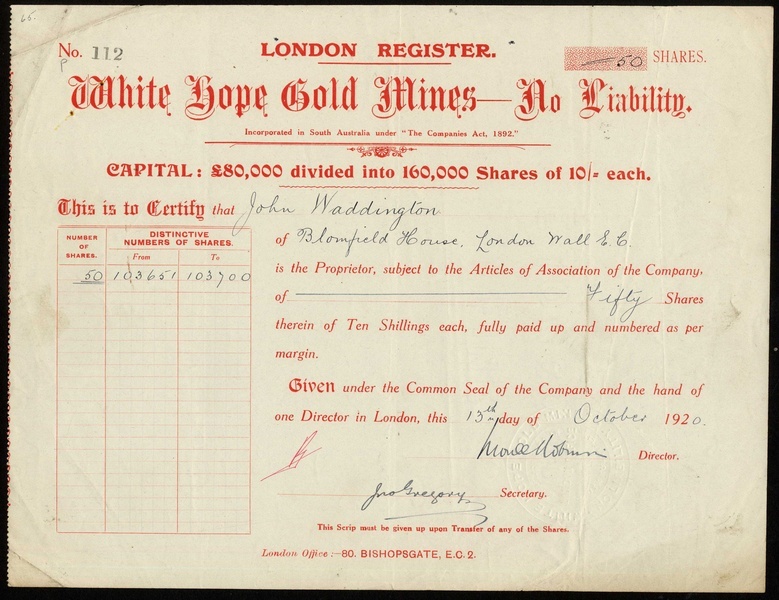 65.
No. 112
LONDON REGISTER.
50 SHARES.
White Hope Gold Mines—No Liability.
Incorporated in South Australia under "The Companies Act, 1892."
CAPITAL: £80,000 divided into 160,000 Shares of 10/= each.
This is to Certify that John Waddington
of Blomfield House, London Wall E.C.
is the Proprietor, subject to the Articles of Association of the Company,
of Fifty Shares
therein of Ten Shillings each, fully paid up and numbered as per
margin.
NUMBER OF SHARES.
DISTINCTIVE NUMBERS OF SHARES.
From To
50 103651 103700
Given under the Common Seal of the Company and the hand of
one Director in London, this 13th day of October 1920.
Director.
Jno Gregory Secretary.
This Scrip must be given up upon Transfer of any of the Shares.
London Office:—80. BISHOPSGATE, E.C.2.